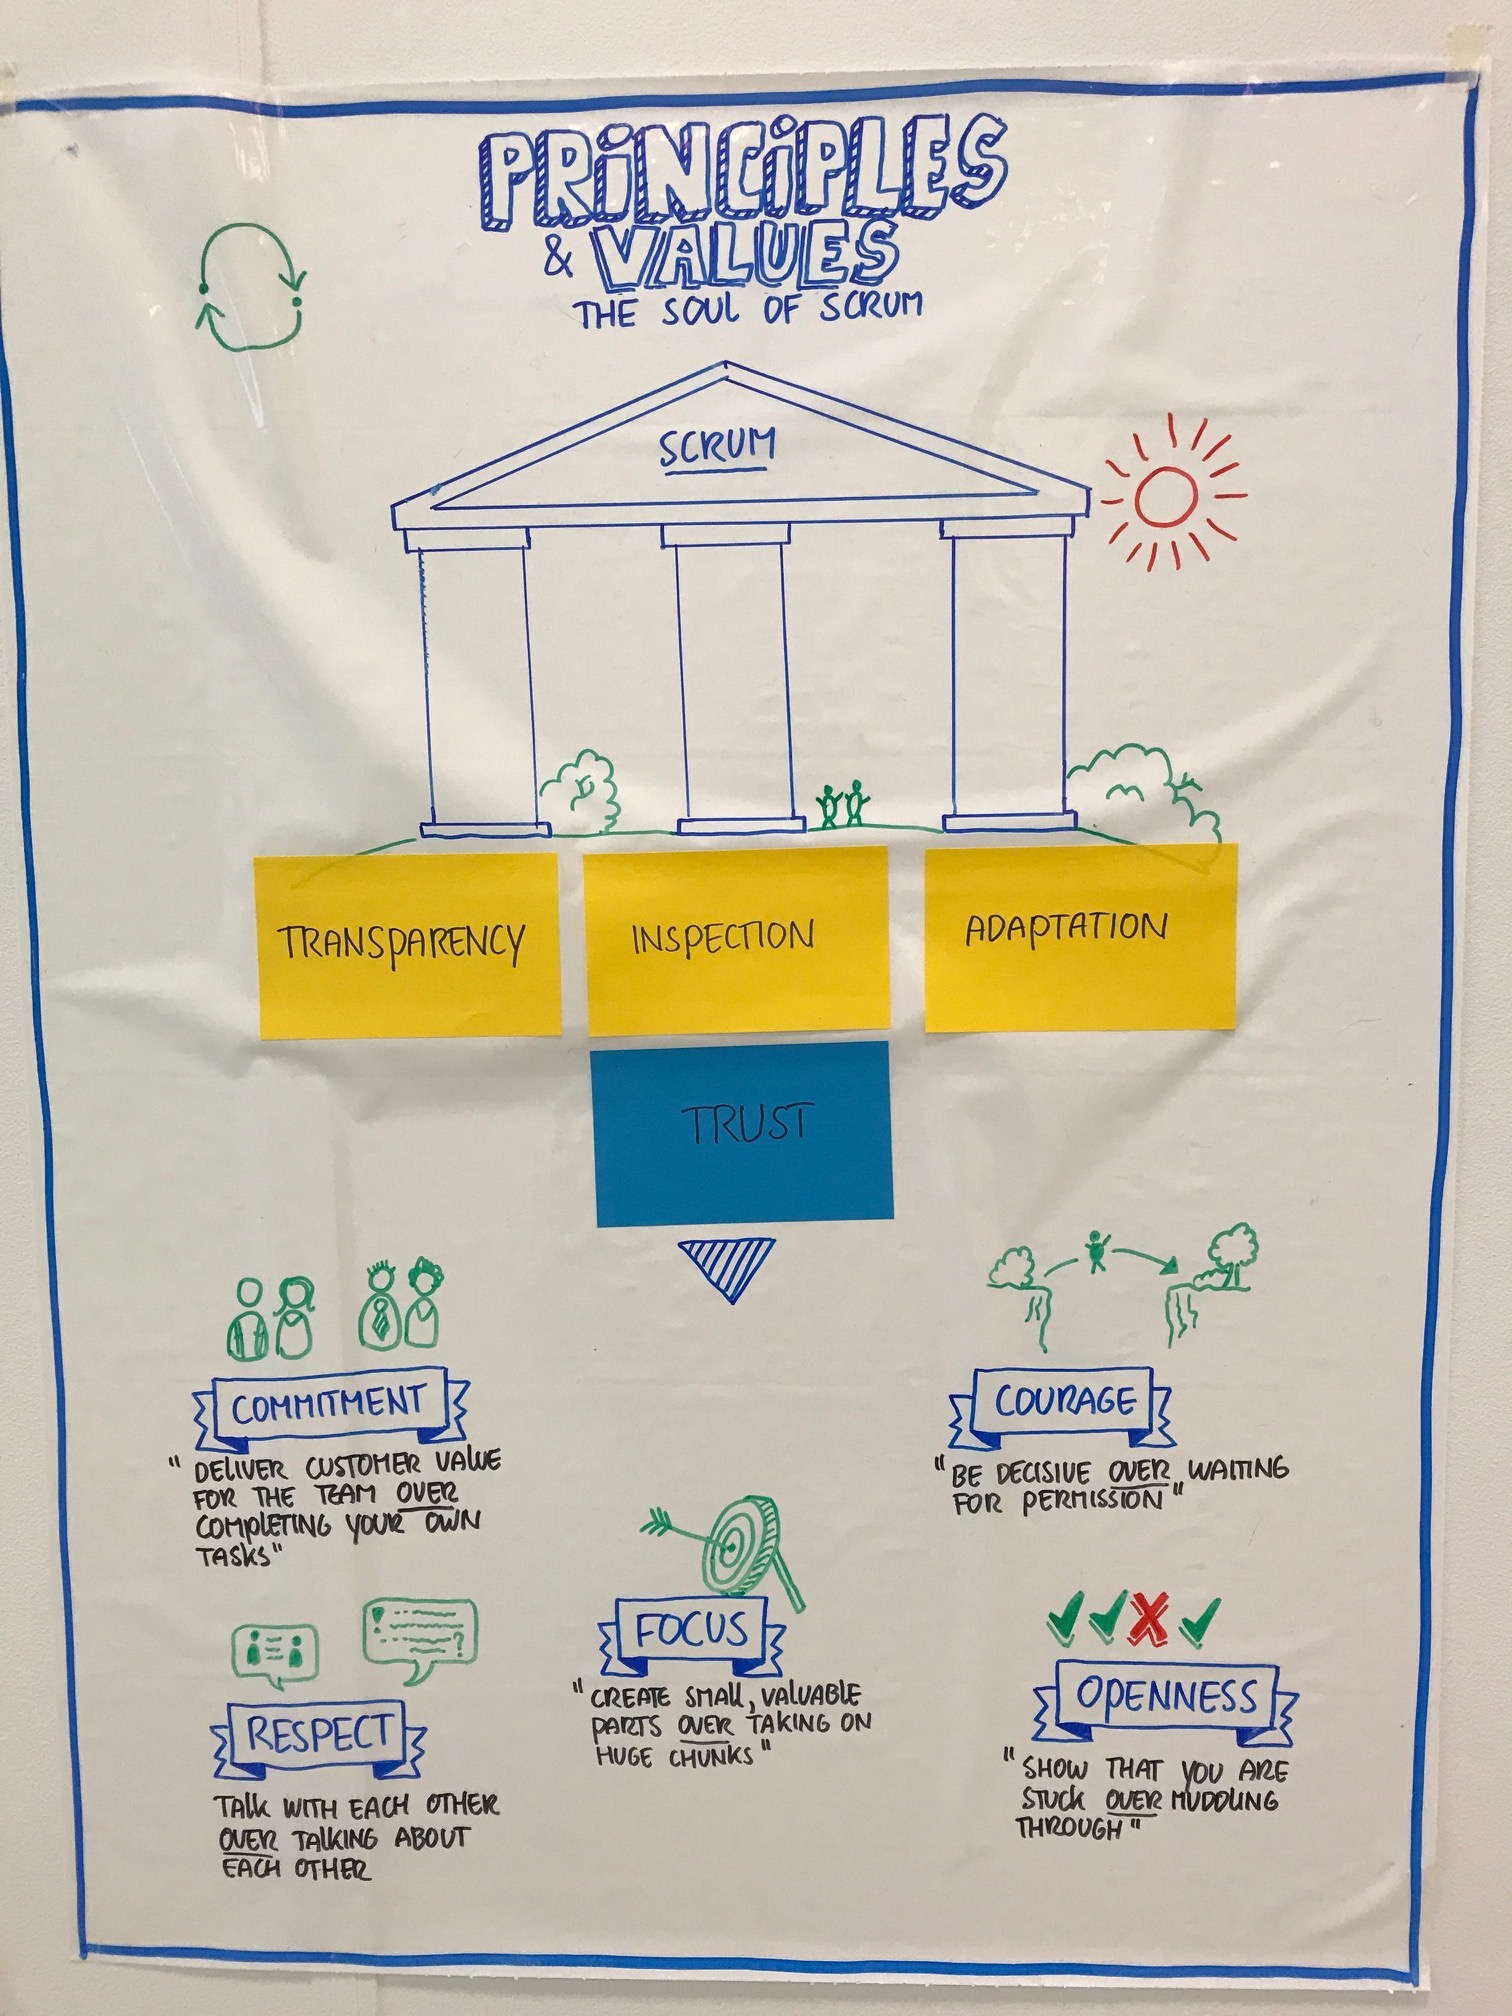 PRINCIPLES
& VALUES
THE SOUL OF SCRUM
SCRUM
TRANSPARENCY
INSPECTION
ADAPTATION
TRUST
COMMITMENT
"DELIVER CUSTOMER VALUE
FOR THE TEAM OVER
COMPLETING YOUR OWN
TASKS"
COURAGE
"BE DECISIVE OVER WAITING
FOR PERMISSION"
FOCUS
"CREATE SMALL, VALUABLE
PARTS OVER TAKING ON
HUGE CHUNKS"
RESPECT
TALK WITH EACH OTHER
OVER TALKING ABOUT
EACH OTHER
OPENNESS
"SHOW THAT YOU ARE
STUCK OVER MUDDLING
THROUGH"